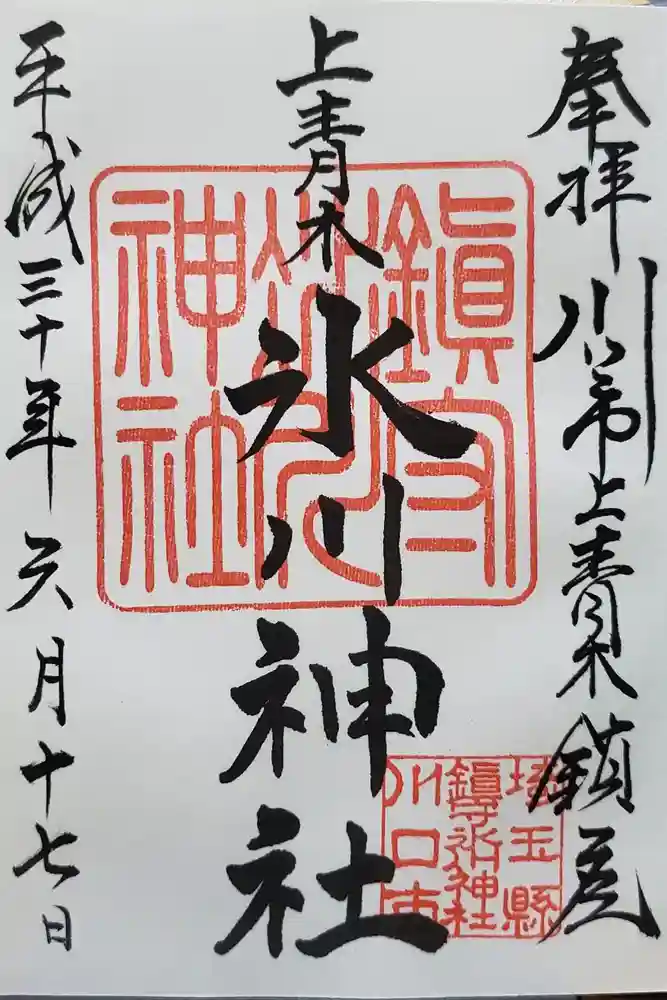 奉拝 川口市上青木鎮座
上青木
氷川神社
平成三十年六月十七日
鎮守
氷川
神社
埼玉縣
鎮守氷神社
川口市